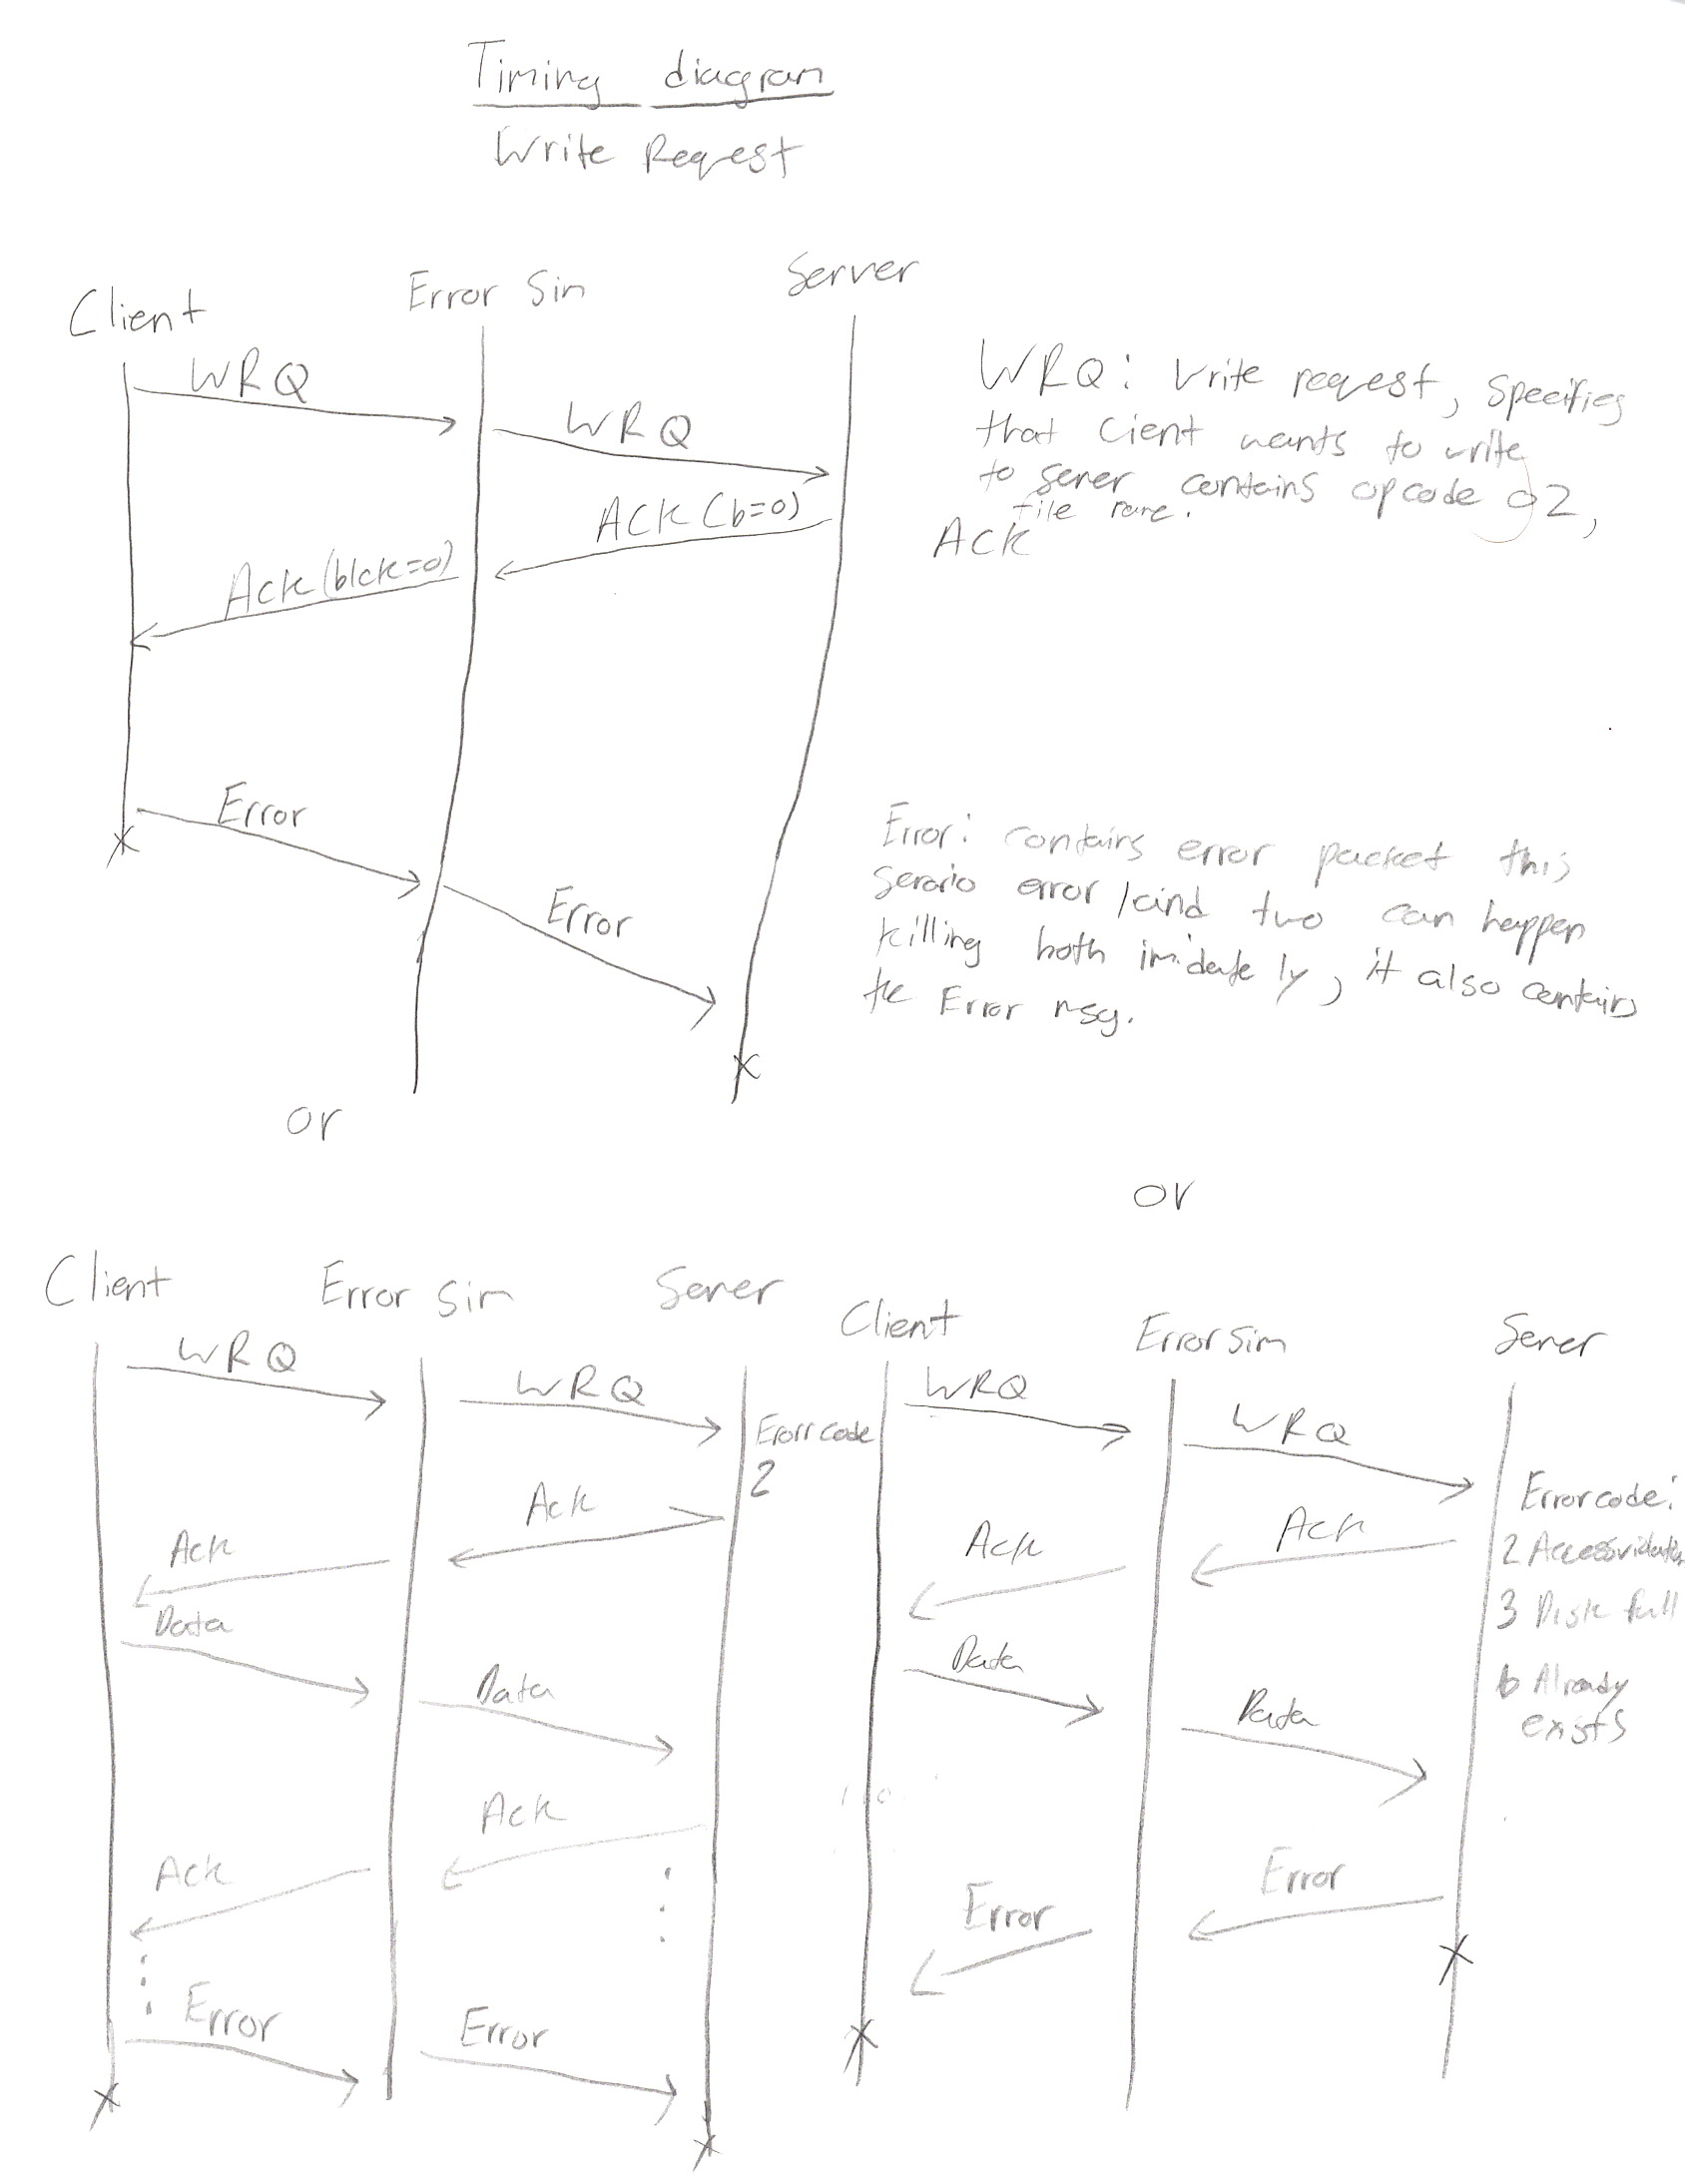 Timing diagram
Write Request
Client
Error Sim
Server
WRQ
WRQ
Ack (b=0)
Ack (blck=0)
Error
Error
WRQ: Write request, Specifies
that Cient wants to write
to server contains opcode 02,
file name.
Ack
Error: contains error packet this
error two can happen
killing both imidately, it also contains
the Error msg.
or
or
Client
Error Sim
Server
WRQ
WRQ
Erorr code
2
Ack
Ack
Data
Data
Ack
Ack
Error
Error
Client
Error Sim
Server
WRQ
WRQ
Error code:
2 Access violation
3 Disk full
6 Already
exists
Ack
Ack
Data
Data
Error
Error